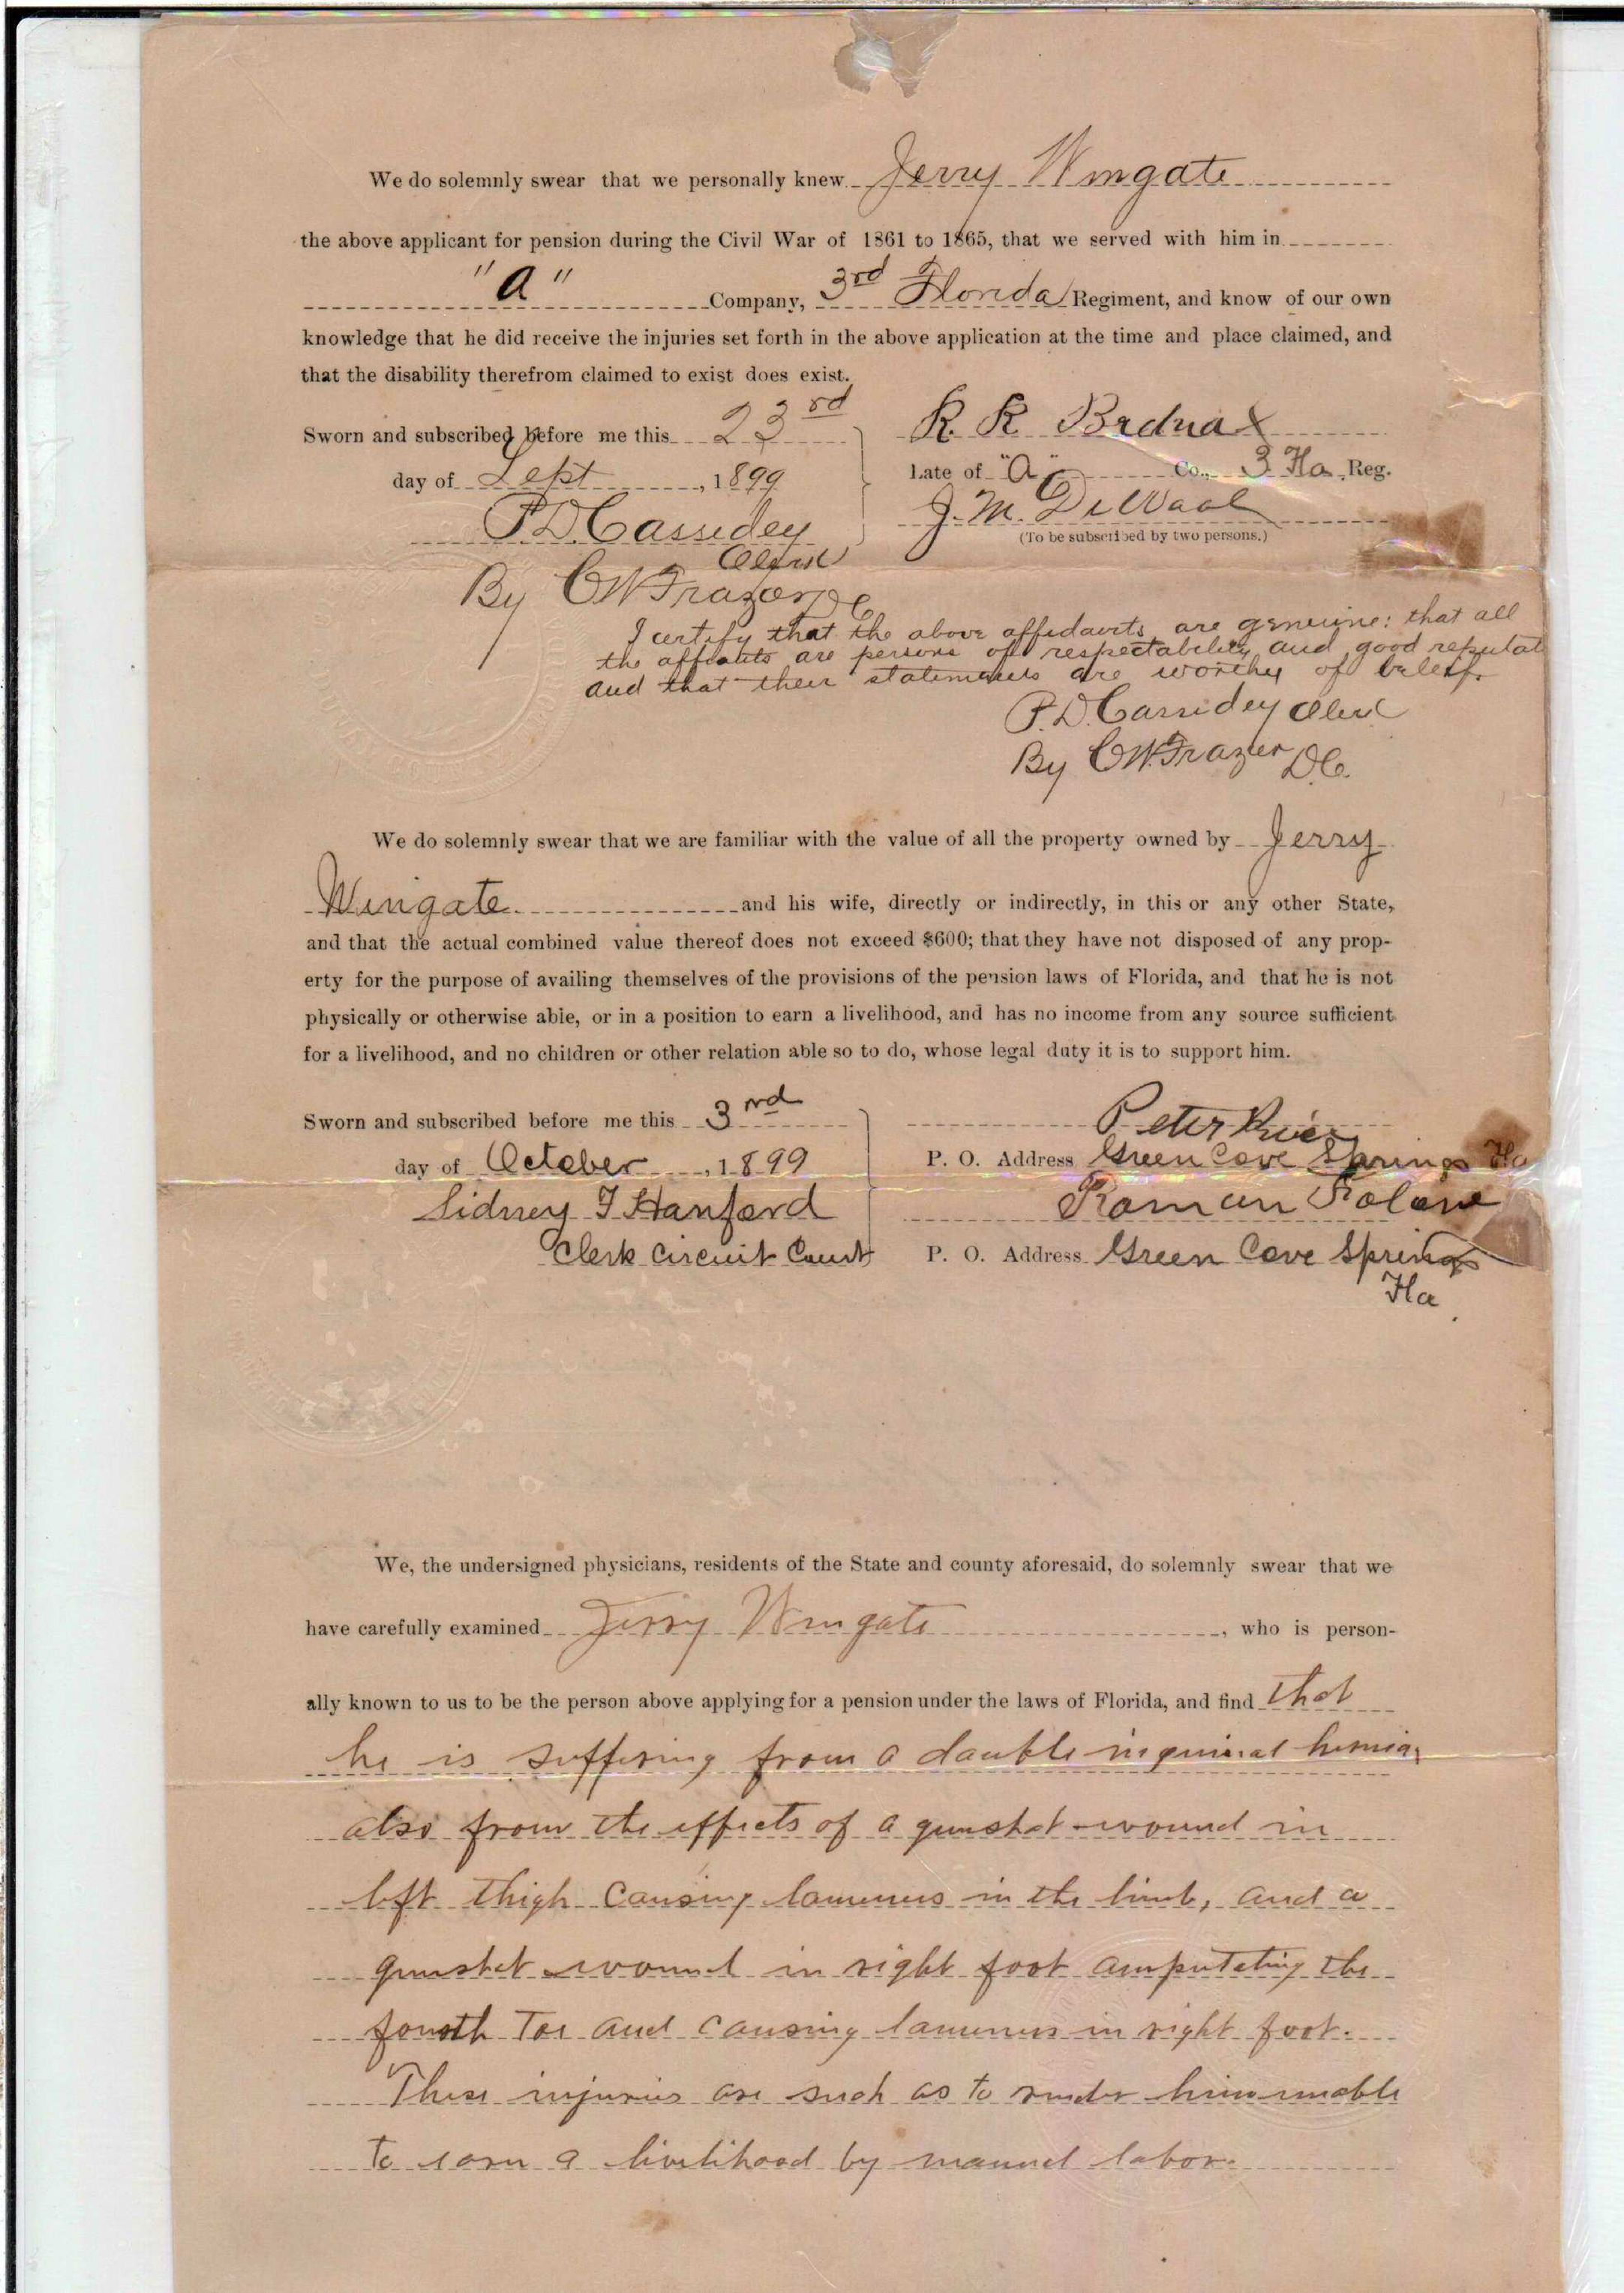 We do solemnly swear that we personally knew Jerry Wingate
the above applicant for pension during the Civil War of 1861 to 1865, that we served with him in
"A" Company, 3rd Florida Regiment, and know of our own
knowledge that he did receive the injuries set forth in the above application at the time and place claimed, and
that the disability therefrom claimed to exist does exist.
Sworn and subscribed before me this 23rd
day of Sept, 1899
P.D. Cassidey
Clerk
By C W Frazer D C
R. R.
Late of "A" Co., 3 Fla. Reg.
J. M.
(To be subscribed by two persons.)
I certify that the above affidavits are genuine: that all
the affiants are persons of respectability and good reputat
and that their statements are worthy of belief.
P.D. Cassidey Clerk
By C W. Frazer D.C.
We do solemnly swear that we are familiar with the value of all the property owned by Jerry
Wingate and his wife, directly or indirectly, in this or any other State,
and that the actual combined value thereof does not exceed $600; that they have not disposed of any prop-
erty for the purpose of availing themselves of the provisions of the pension laws of Florida, and that he is not
physically or otherwise able, or in a position to earn a livelihood, and has no income from any source sufficient
for a livelihood, and no children or other relation able so to do, whose legal duty it is to support him.
Sworn and subscribed before me this 3rd
day of October, 1899
Sidney F Hanford
Clerk Circuit Court
Peter
P. O. Address Green Cove Springs Fla
Roman
P. O. Address Green Cove Springs
Fla
We, the undersigned physicians, residents of the State and county aforesaid, do solemnly swear that we
have carefully examined Jerry Wingate, who is person-
ally known to us to be the person above applying for a pension under the laws of Florida, and find that
he is suffering from a double inguinal hernia,
also from the effects of a gunshot wound in
left thigh causing lameness in the limb, and a
gunshot wound in right foot amputating the
fourth Toe and causing lameness in right foot.
These injuries are such as to render him unable
to earn a livelihood by manuel labor.